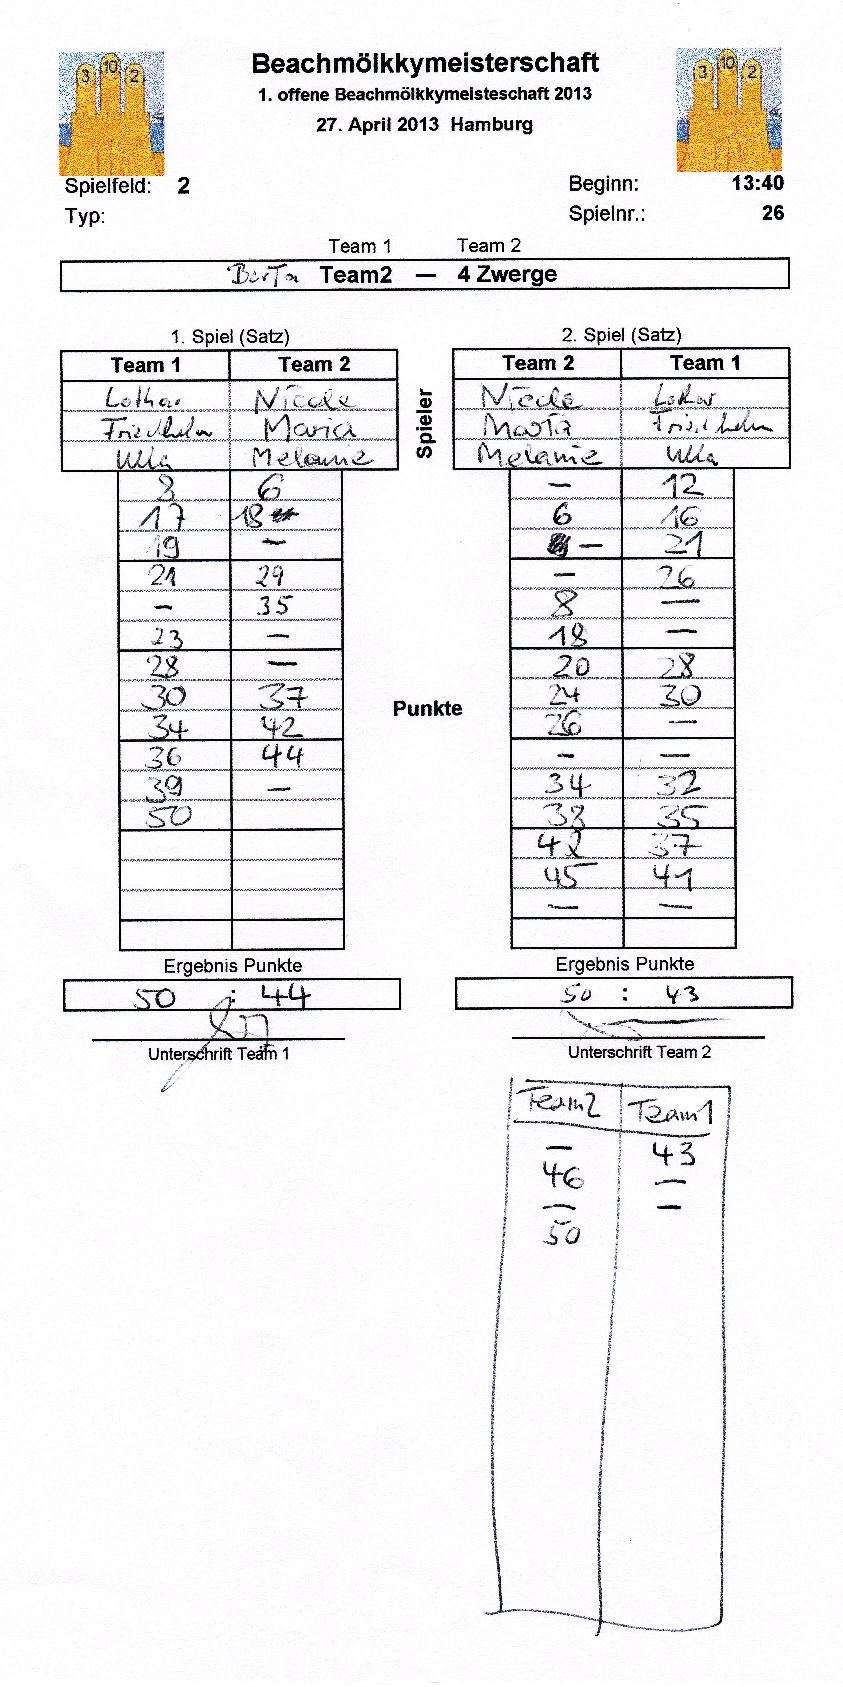 3 10 2
Beachmölkkymeisterschaft
3 10 2
1. offene Beachmölkkymeisteschaft 2013
27. April 2013 Hamburg
Spielfeld: 2
Beginn: 13:40
Typ:
Spielnr.: 26
Team 1 Team 2
BerTa Team2 — 4 Zwerge
1. Spiel (Satz)
Team 1 Team 2
Lothar Nicole
Friedhelm Maria
Ulla Melanie
8 6
17 18
19 –
21 29
– 35
23 –
28 –
30 37
34 42
36 44
39 –
50
Ergebnis Punkte
50 : 44
Unterschrift Team 1
Spieler
Punkte
2. Spiel (Satz)
Team 2 Team 1
Nicole Lothar
Maria Friedhelm
Melanie Ulla
– 12
6 16
– 21
– 26
8 –
18 –
20 28
24 30
26 –
– –
34 32
38 35
42 37
45 41
– –
Ergebnis Punkte
50 : 43
Unterschrift Team 2
Team2 Team1
– 43
46 –
– –
50